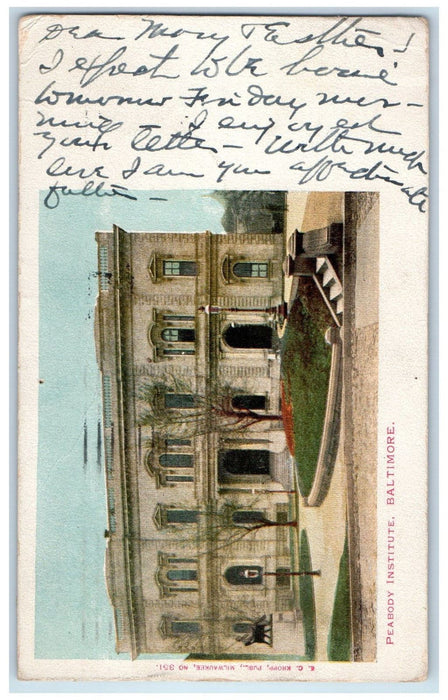 Dear Mary & Esther!
I expect to be home
tomorrow Friday mor-
ning. I enjoyed
your letter – With much
love I am you affectionate
father –
PEABODY INSTITUTE. BALTIMORE.
E. C. KROPP, PUB., MILWAUKEE, NO 351.